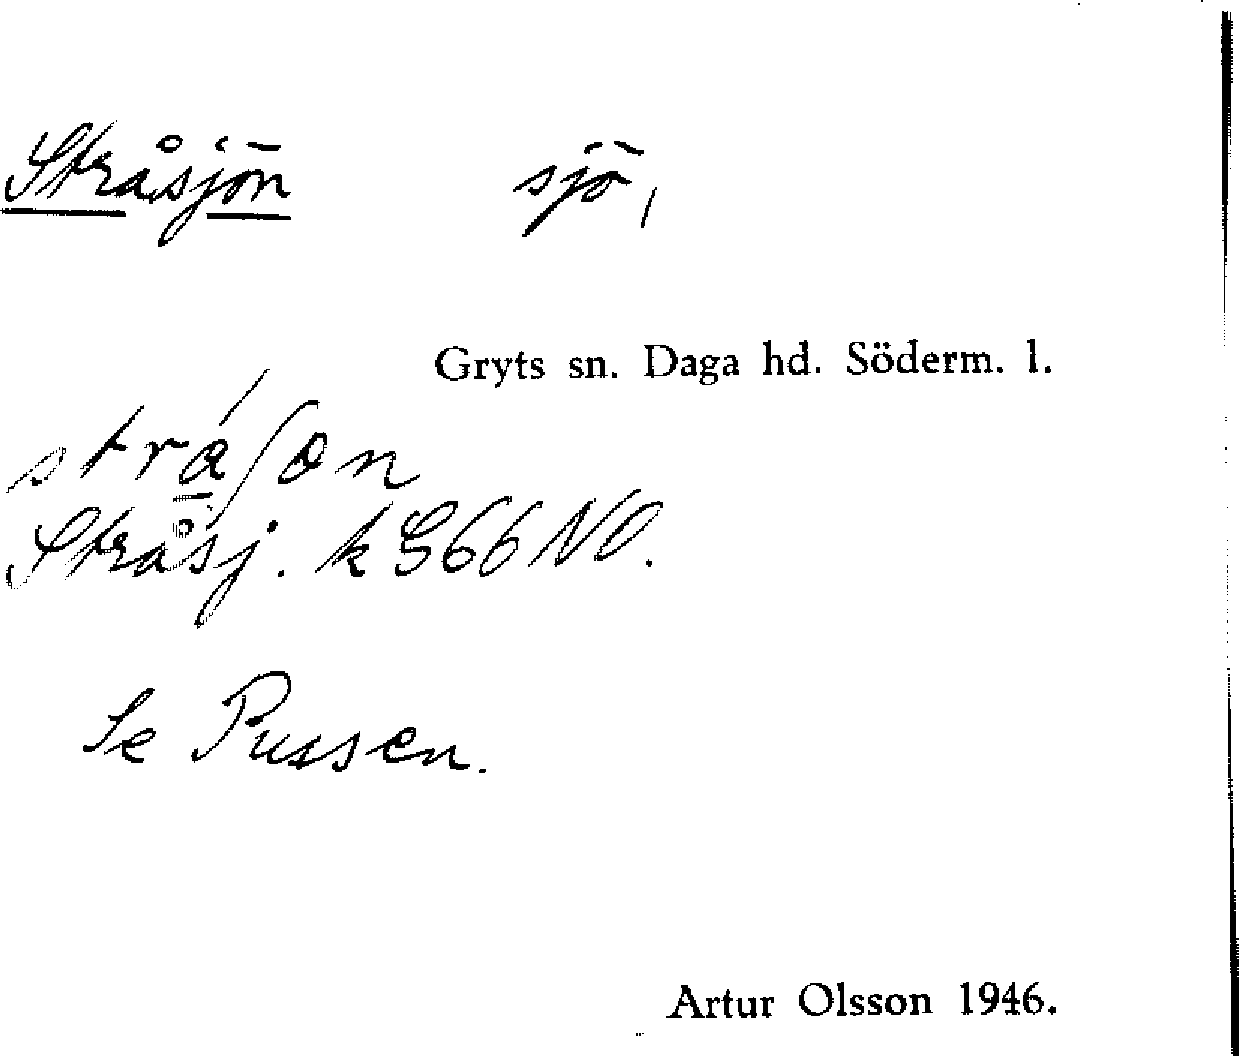 Stråsjön sjö,
Gryts sn. Daga hd. Söderm. l.
Stråsj. k S66 NO.
Se Pussen.
Artur Olsson 1946.